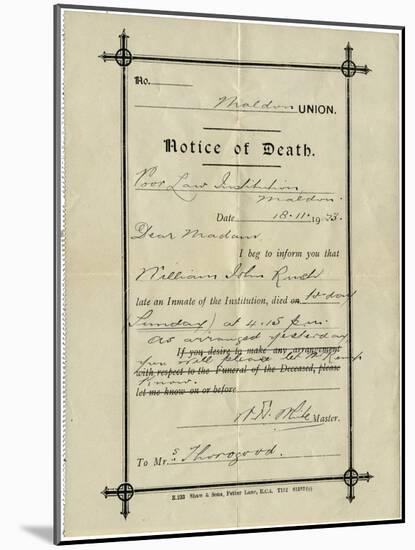 No.
Maldon UNION.
Notice of Death.
Poor Law Institution,
Maldon
Date 18·11·1923.
Dear Madam,
I beg to inform you that
William John Rush
late an Inmate of the Institution, died on to-day
(Sunday) at 4.15 p.m.
As arranged yesterday
If you desire to make any arrangement
you will please let Mr
with respect to the Funeral of the Deceased, please
know.
let me know on or before
Master.
To Mrs Thorogood.
E.293 Shaw & Sons, Fetter Lane, E.C.4.